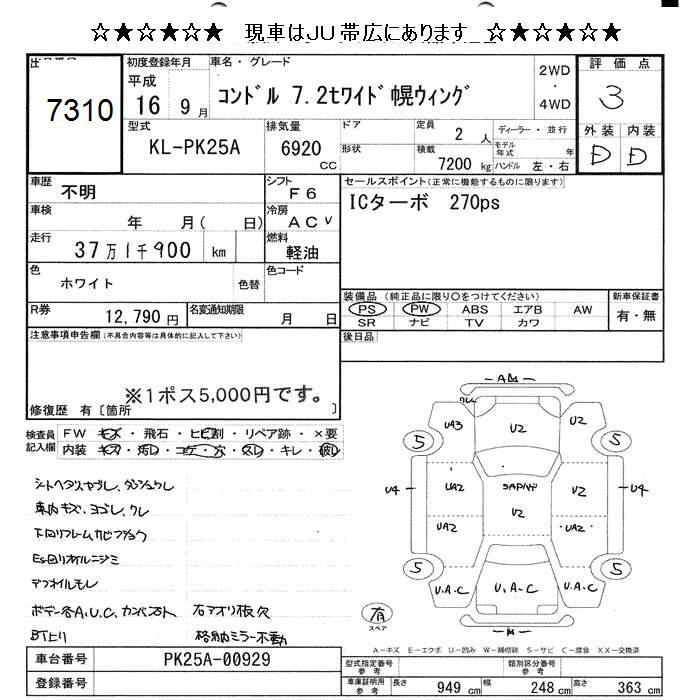 ☆★☆★☆★ 現車はJU帯広にあります ☆★☆★☆★
7310
初度登録年月
平成
16 9 月
車名・グレード
コンドル 7.2tワイド 幌ウィング
2WD
・
4WD
評価点
3
外装 内装
D D
型式
KL-PK25A
排気量
6920
CC
ドア
形状
定員 2 人
積載 7200 kg
ディーラー・並行
モデル年式 年
ハンドル 左・右
車歴 不明
シフト F6
セールスポイント(正常に機能するものに限ります)
ICターボ 270ps
車検 年 月( 日)
冷房 AC
走行 37万1千900 km
燃料 軽油
色 ホワイト 色替
色コード
R券 12,790 円
名変通知期限 月 日
装備品(純正品に限り○をつけてください)
PS PW ABS エアB AW
SR ナビ TV カワ
新車保証書
有・無
注意事項申告欄(不具合内容等は具体的に記入して下さい)
後日品
※1ポス5,000円です。
修復歴 有〔箇所 〕
検査員記入欄
FW キズ・飛石・ヒビ割・リペア跡・×要
内装 キズ・汚レ・コゲ・穴・スレ・キレ・破レ
シートヘタリ
車内キズ、ヨゴレ、ワレ
デフオイルモレ
ボデー各A.U.C.
格納ミラー不動
A
UA3 U2 U2
5 5
U4 UA2 U2 U4
UA2 U2 UA2
5 5
U.A.C U.A.C U.A.C
有
スペア
A-キズ E-エクボ U-凹み W-補修跡 S-サビ C-腐食 XX-交換済
車台番号 PK25A-00929
登録番号
型式指定番号参考
類別区分番号参考
車庫証明用参考 長さ 949 cm 幅 248 cm 高さ 363 cm